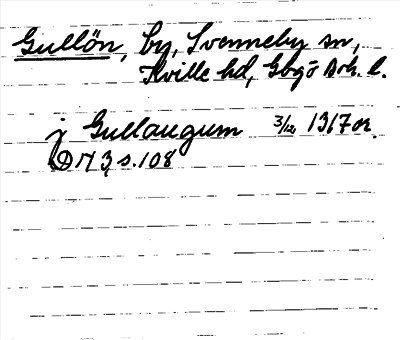 Gullön, by, Svenneby sn,
Kville hd, Gbg o Boh. l.
j Gullaugum 3/12 1317 or.
DN 3, s. 108